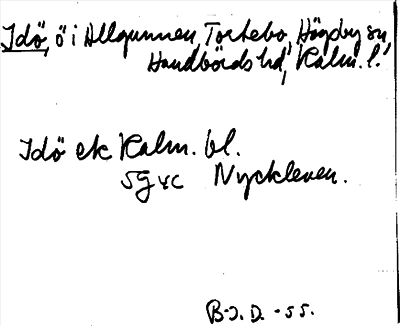 Idö, ö i Allgunnen, Torhebo, Högsby sn,
Handbörds hd, Kalm. l.
Idö ek Kalm. bl.
5g vc Nyckleven.
B-J. D. -55.